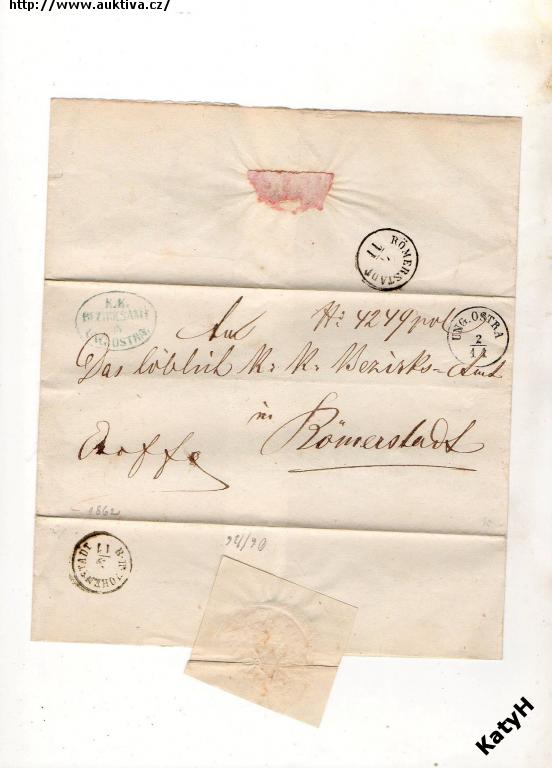 http://www.auktiva.cz/
RÖMERSTADT
11
K.K.
BEZIRKSAMT
UNG. OSTRA
An Nr 4249 pol
UNG. OSTRA
2
11
Das löblich K. K. Bezirks-Amt
in
Römerstadt
1862
HOHENSTADT
11
KatyH